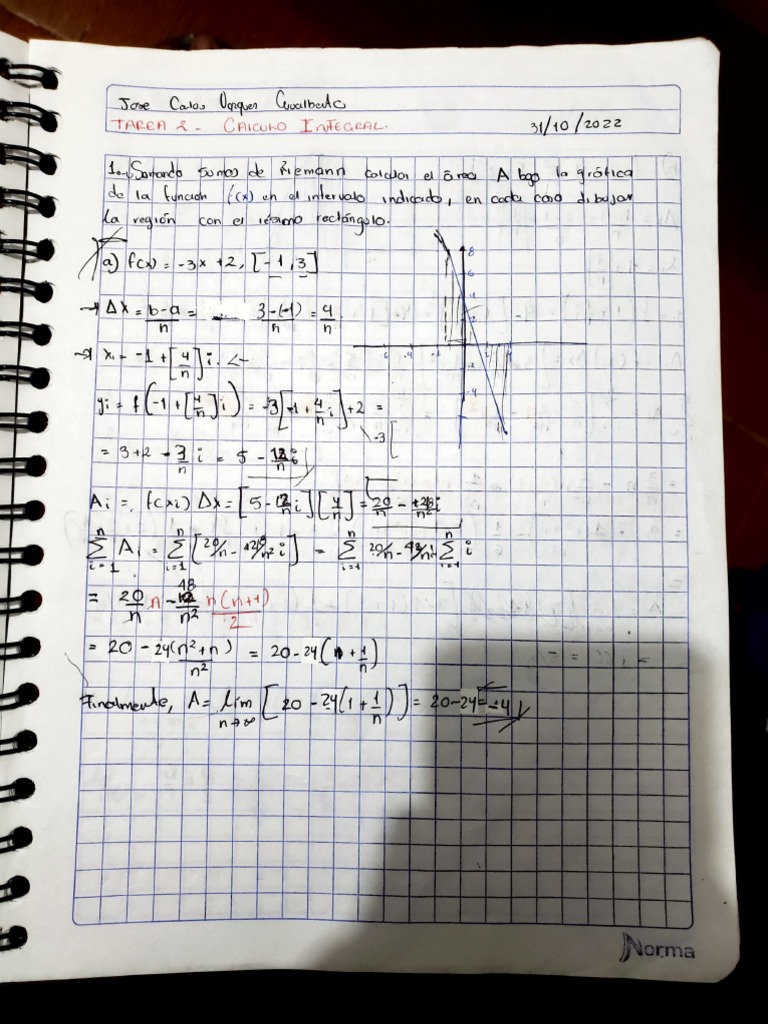 Jose Carlos Vasquez Gualberto
TAREA 2.- CALCULO INTEGRAL. 31/10/2022
1.- Sumando sumas de Riemann calcular el área A bajo la gráfica
de la función f(x) en el intervalo indicado, en cada caso dibujar
la región con el iésimo rectángulo.
a) f(x) = -3x +2, [-1, 3]
→ Δx = b-a/n = 3-(-1)/n = 4/n
→ xi = -1 + [4/n]i. <-
yi = f(-1+[4/n]i) = -3[-1+4/n i]+2 =
-3[
= 3+2 - 3/n i = 5 - 12/n i
Ai = f(xi) Δx = [5 - 12/n i][4/n] = 20/n - 48/n² i
n∑i=1 Ai = n∑i=1 [20/n - 48/n² i] = n∑i=1 20/n - 48/n² n∑i=1 i
= 20/n n - 48/n² n(n+1)/2
= 20 - 24(n²+n)/n² = 20-24(1+1/n)
Finalmente, A = lím n→∞ [20 - 24(1+1/n)] = 20-24 = -4
8
6
4
2
-2
-4
Norma